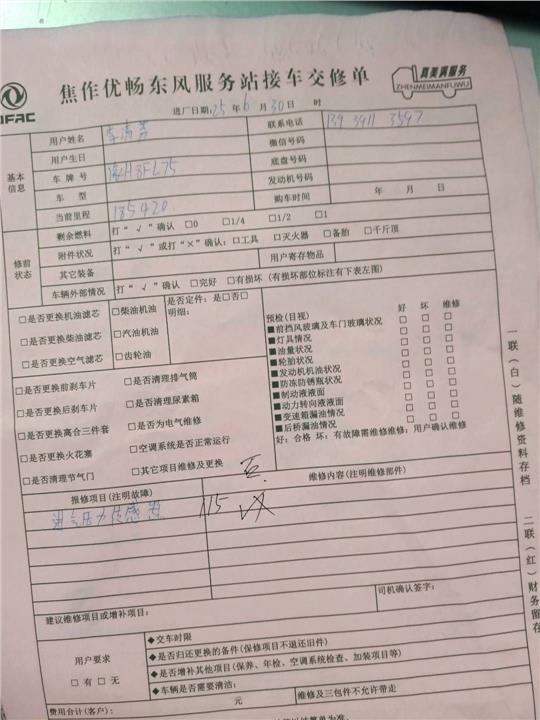 DFAC
焦作优畅东风服务站接车交修单
真美满服务
ZHENMEIMANFUWU
进厂日期:25 年 6 月 30 日 时
基本信息
用户姓名
联系电话 139 3911 3597
用户生日
微信号码
车牌号 豫H3FL75
底盘号码
车型
发动机号码
当前里程 185420
购车时间 年 月 日
修前状态
剩余燃料 打“√”确认 □0 □1/4 □1/2 □1
附件状况 打“√”或打“×”确认:□工具 □灭火器 □备胎 □千斤顶
其它装备
用户寄存物品
车辆外部情况 打“√”确认 □完好 □有损坏 (有损坏部位标注有下表左图)
□是否更换机油滤芯
□是否更换柴油滤芯
□是否更换空气滤芯
□柴油机油
□汽油机油
□齿轮油
是否定件:是□否□
明细:
预检(目视) 好 坏 维修
■前挡风玻璃及车门玻璃状况 □ □ □
■灯具情况 □ □ □
■油量状况 □ □ □
■轮胎状况 □ □ □
■发动机机油状况 □ □ □
■防冻防锈瓶状况 □ □ □
■制动液液面 □ □ □
■动力转向液液面 □ □ □
■变速箱漏油情况 □ □ □
■后桥漏油情况 □ □ □
好:合格 坏:有故障需维修维修:用户确认维修
□是否更换前刹车片
□是否清理排气筒
□是否更换后刹车片
□是否清理尿素箱
□是否更换离合三件套
□是否为电气维修
□是否更换火花塞
□空调系统是否正常运行
□是否清理节气门
□其它项目维修及更换
报修项目(注明故障)
维修内容(注明维修部件)
进气压力传感器
115
司机确认签字:
建议维修项目或增补项目:
用户要求
□有 □无
◆交车时限
◆是否归还更换的备件(保修项目不退还旧件)
◆是否增补其他项目(保养、年检、空调系统检查、加装项目等)
◆车辆是否需要清洁:
费用合计(客户): 元
维修及三包件不允许带走
一联(白)随维修资料存档
二联(红)财务留存